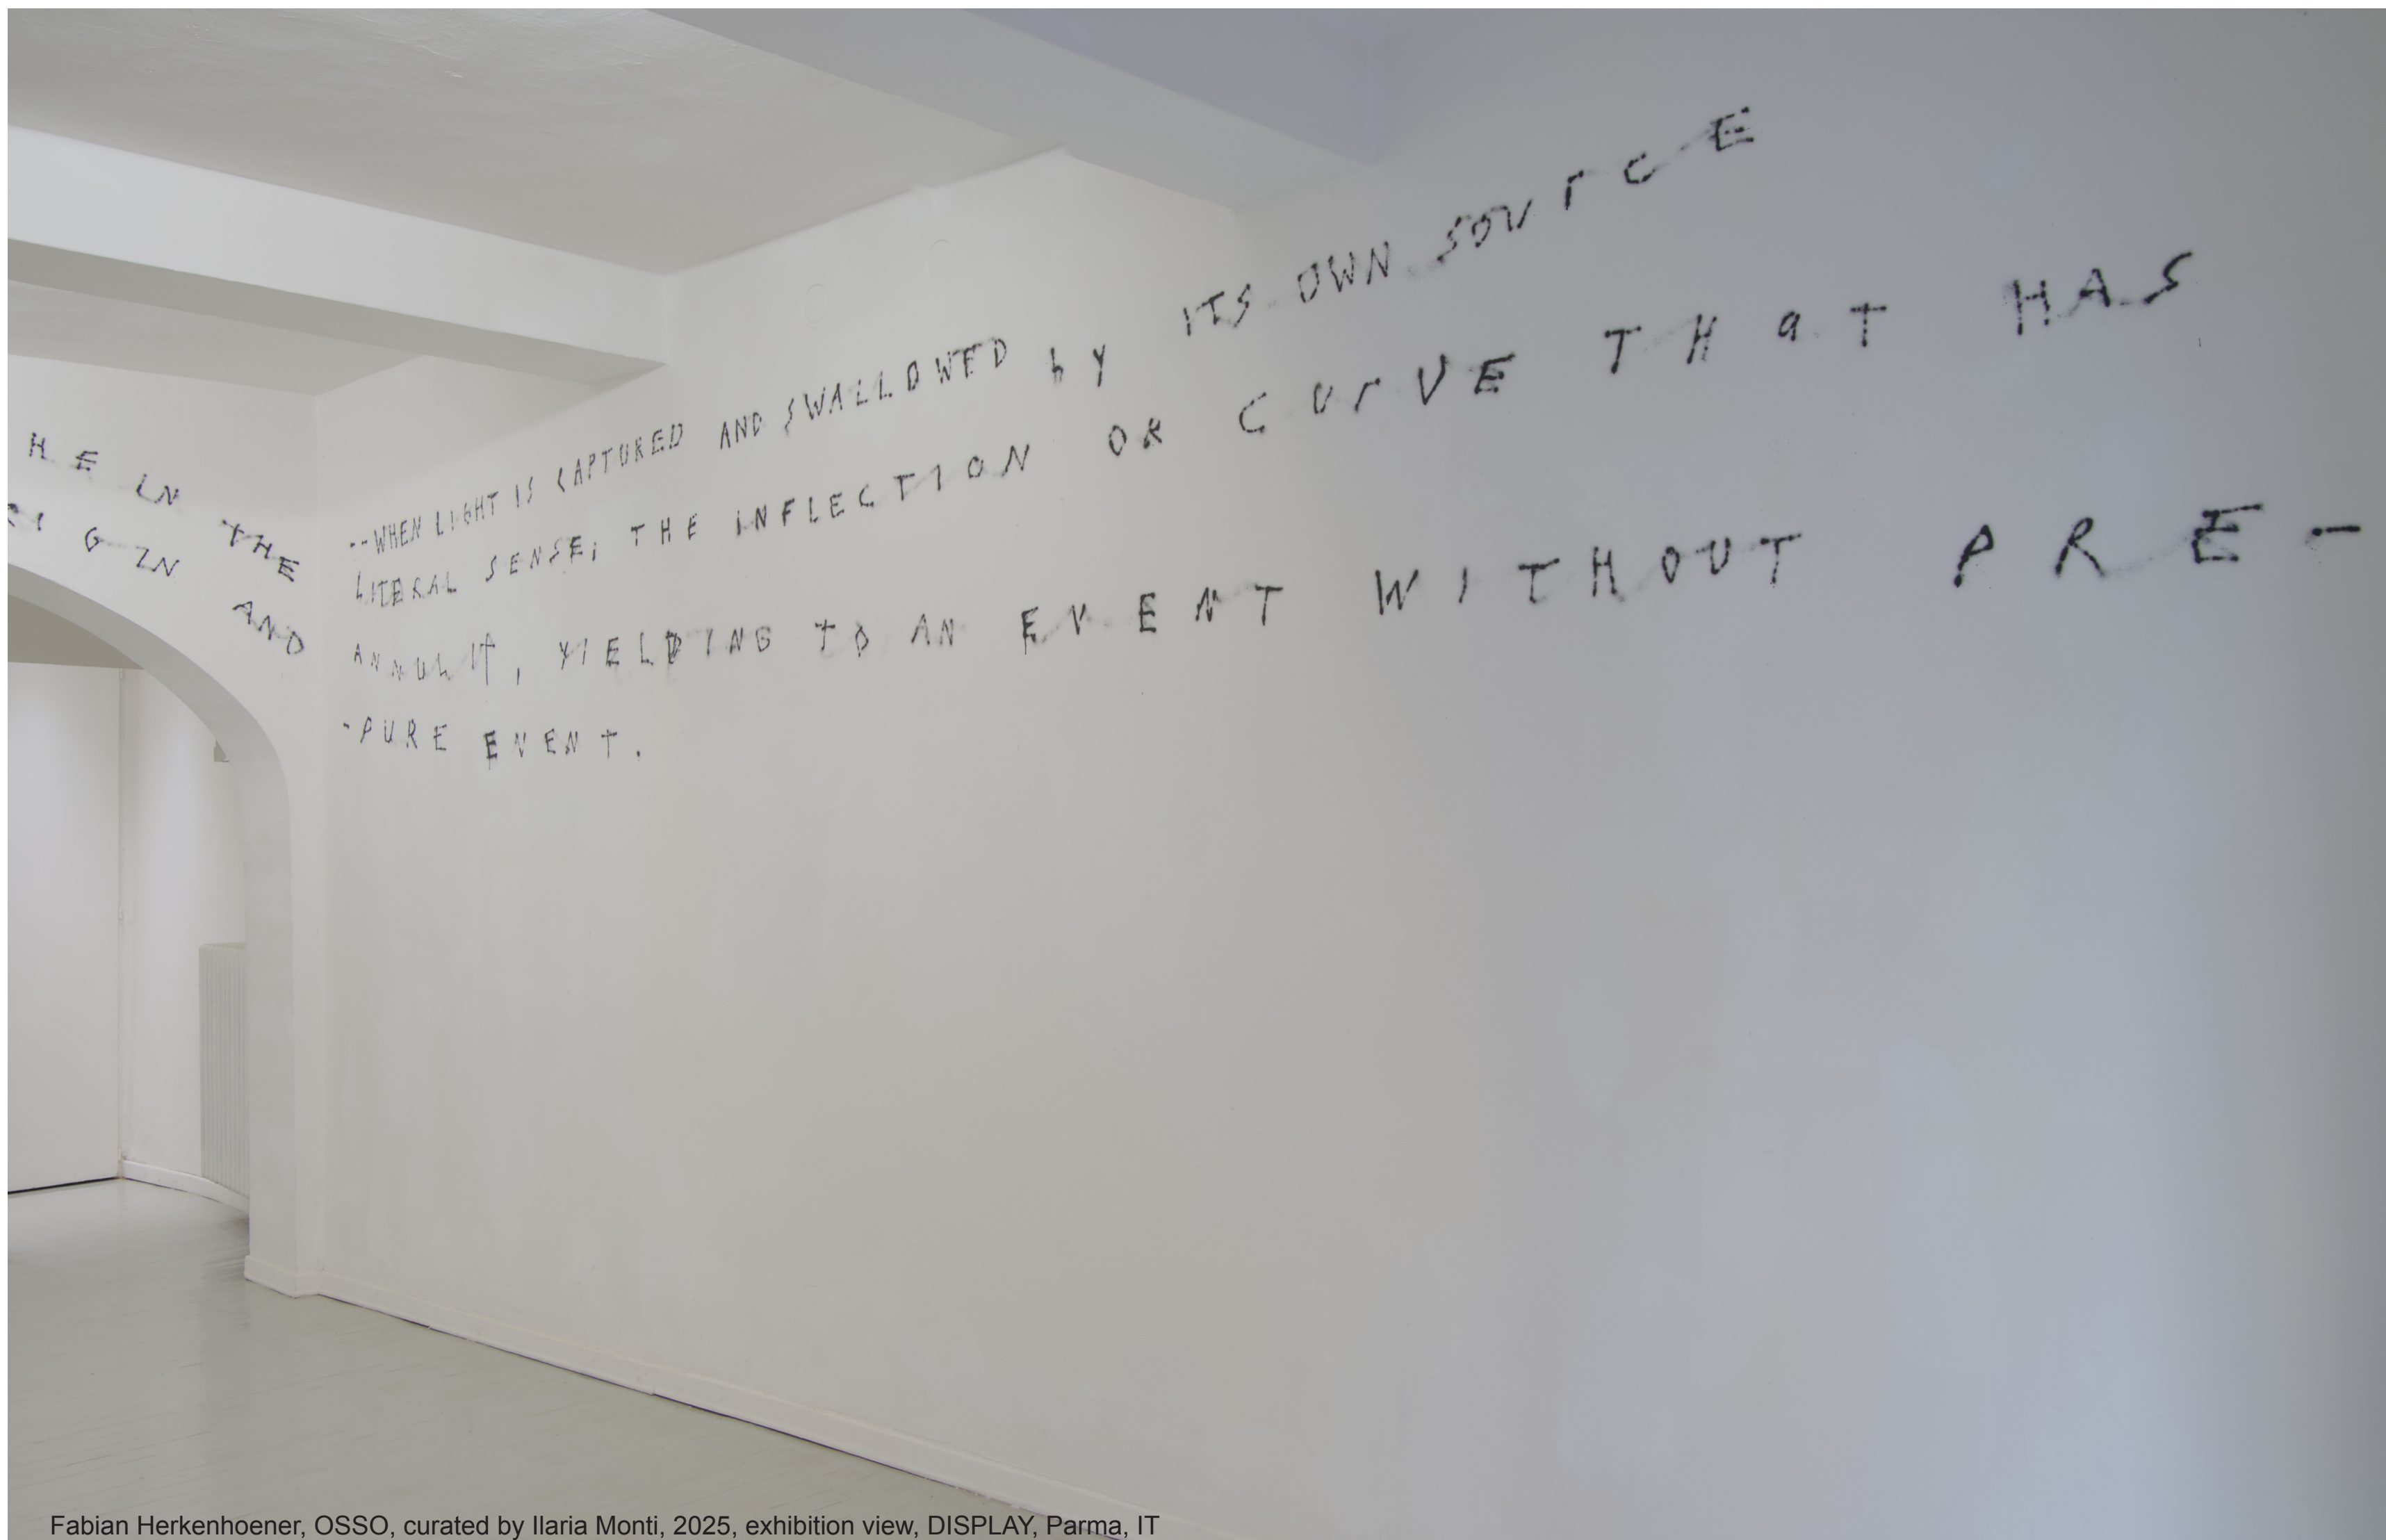 HE IN THE
RIGIN AND
--WHEN LIGHT IS CAPTURED AND SWALLOWED bY ITS OWN SOUrcE
LITERAL SENSE; THE INFLECTION OR CUrVE THaT HAS
ANNUL IT, YIELDING TO AN EVENT WITHOUT PRE-
-PURE EVENT.
Fabian Herkenhoener, OSSO, curated by Ilaria Monti, 2025, exhibition view, DISPLAY, Parma, IT